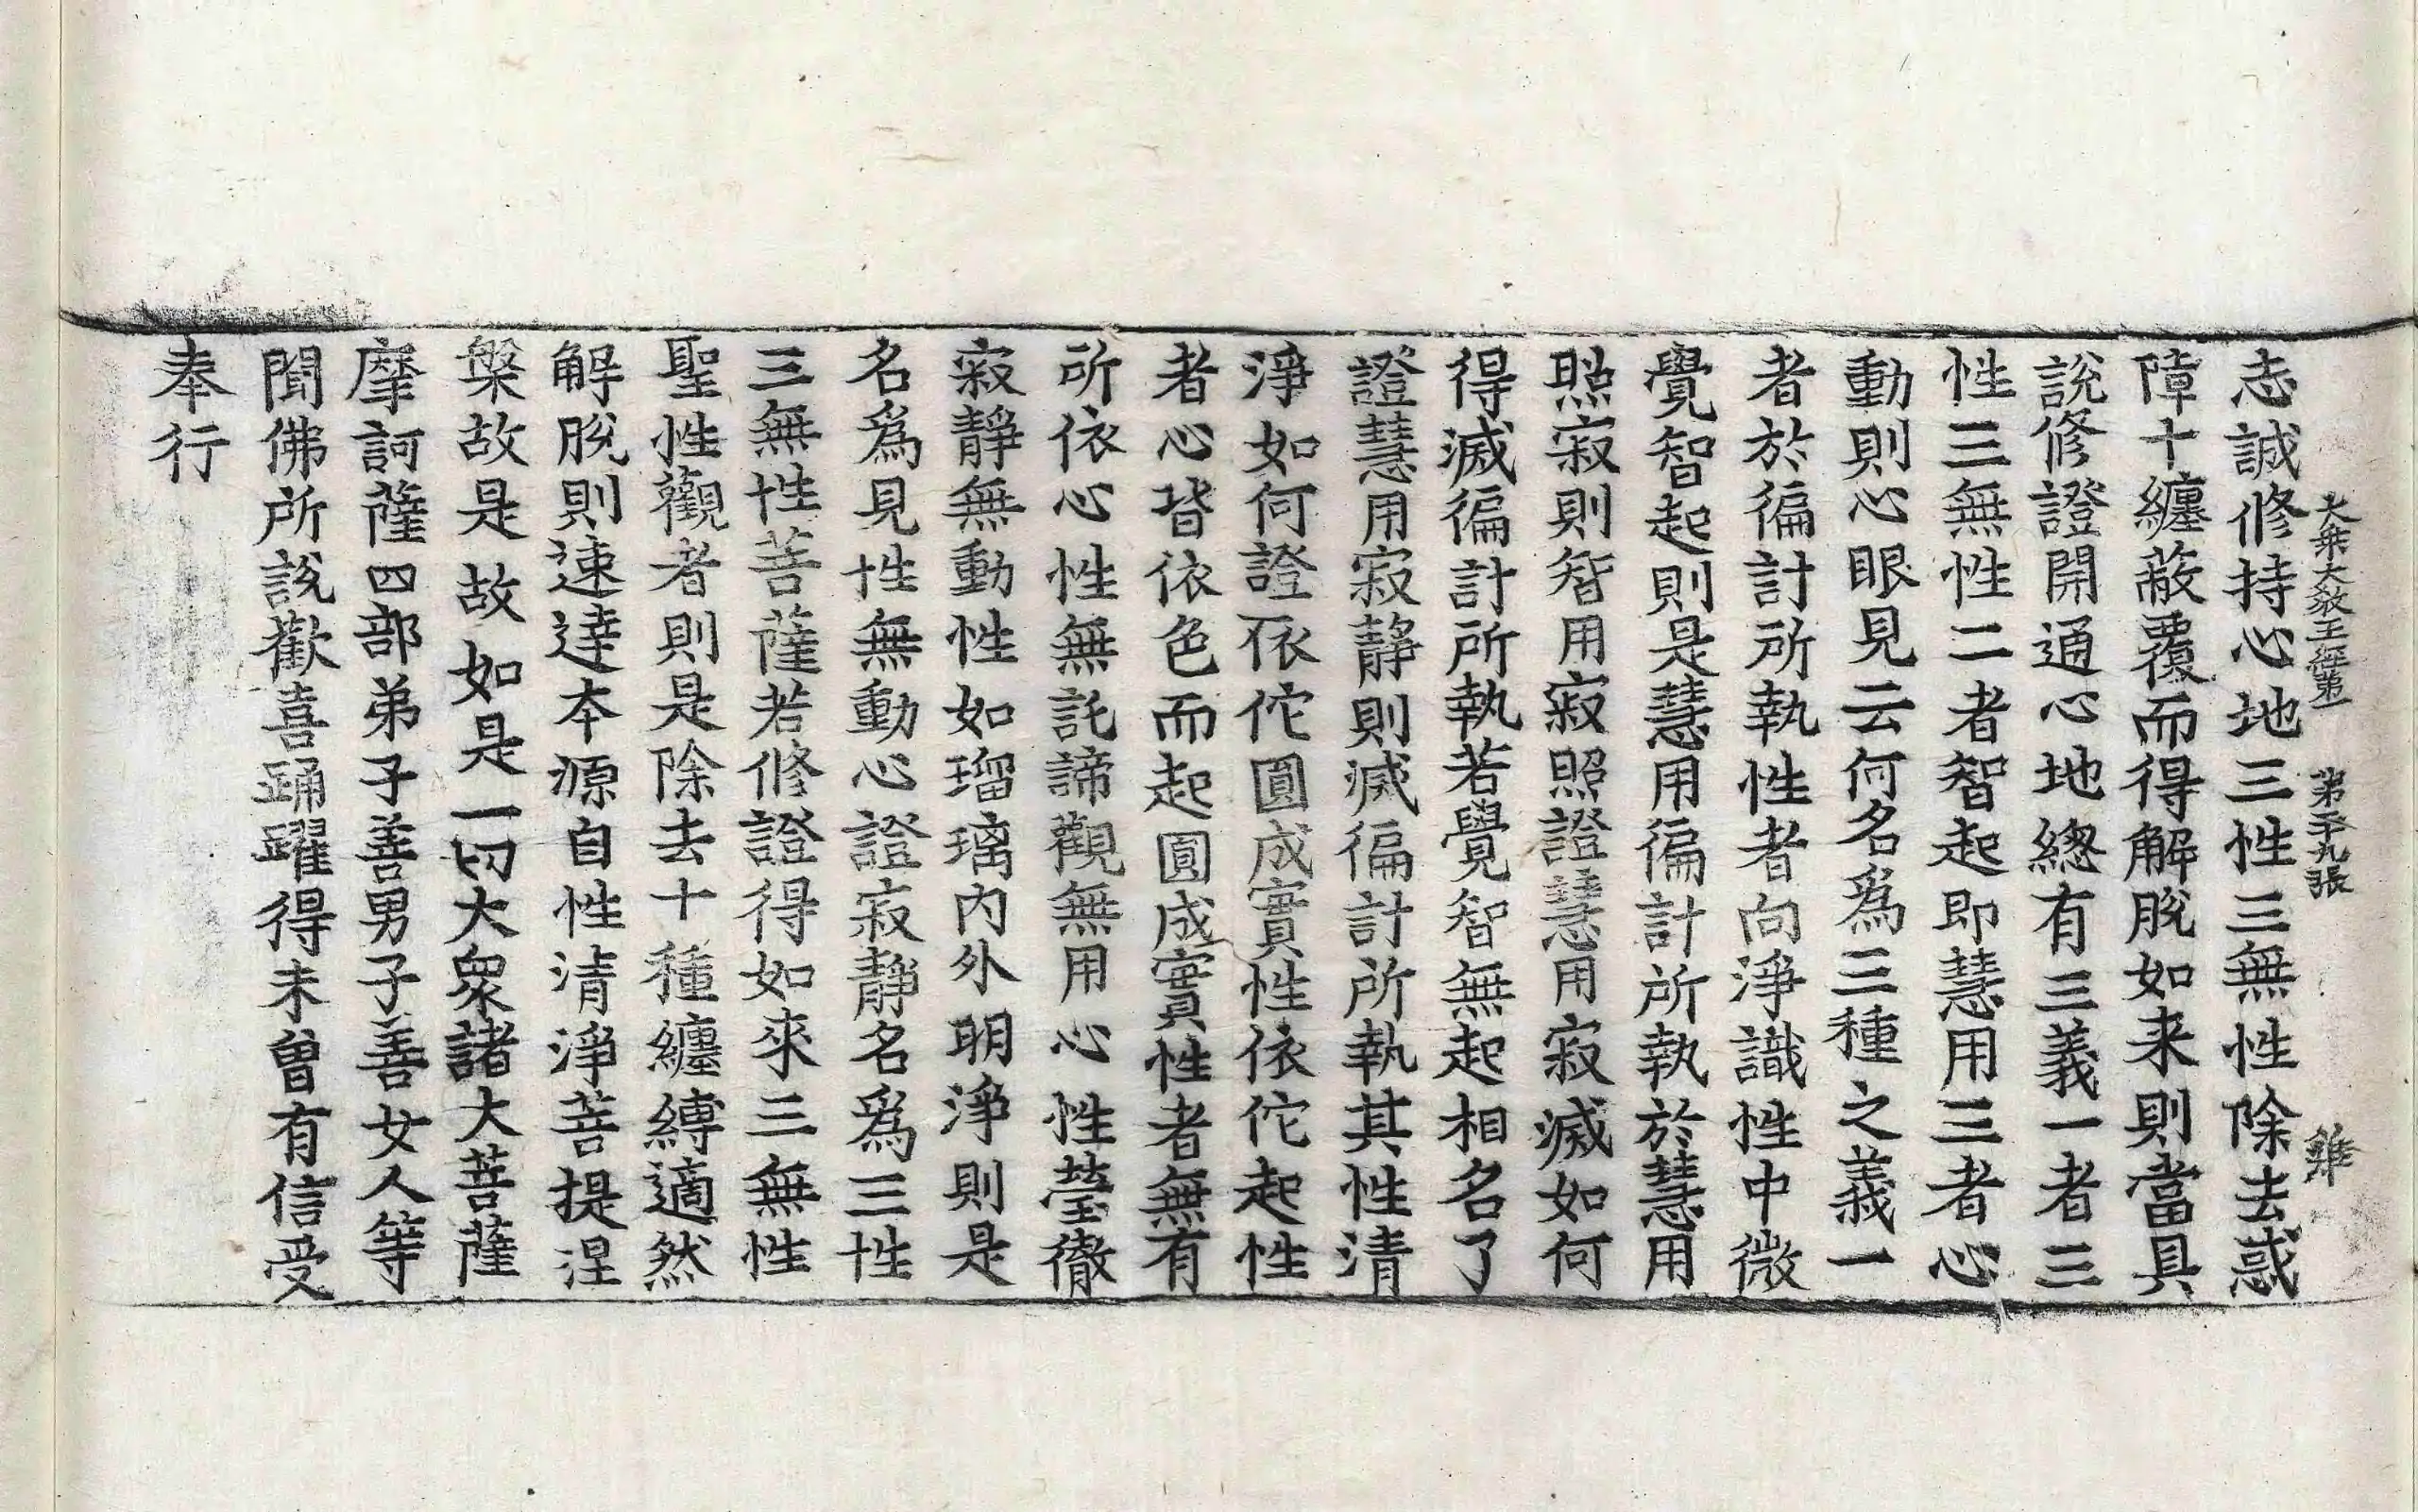 大乘大教王經第一 第二十九張 雞
志誠修持心地三性三無性除去惑
障十纏蔽覆而得解脫如来則當具
說修證開通心地總有三義一者三
性三無性二者智起即慧用三者心
動則心眼見云何名爲三種之義一
者於徧計所執性者向淨識性中微
覺智起則是慧用徧計所執於慧用
照寂則智用寂照證慧用寂滅如何
得滅徧計所執若覺智無起相名了
證慧用寂靜則滅徧計所執其性清
淨如何證依佗圓成實性依佗起性
者心皆依色而起圓成實性者無有
所依心性無託諦觀無用心性瑩徹
寂靜無動性如瑠璃內外明淨則是
名爲見性無動心證寂靜名爲三性
三無性菩薩若修證得如來三無性
聖性觀者則是除去十種纏縛適然
解脫則速達本源自性清淨菩提涅
槃故是故如是一切大衆諸大菩薩
摩訶薩四部弟子善男子善女人等
聞佛所說歡喜踊躍得未曾有信受
奉行